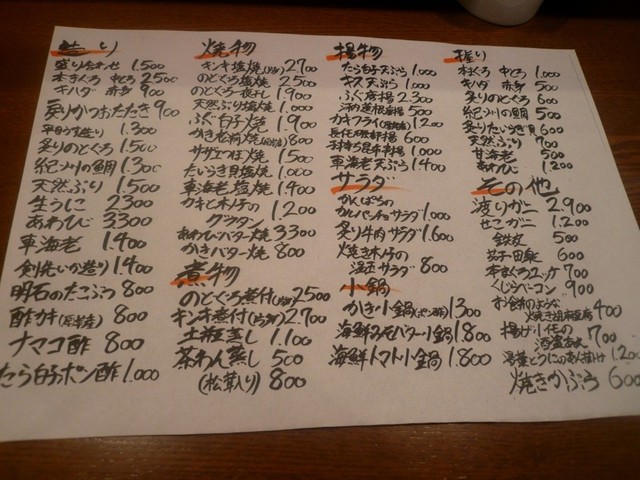 造り
盛り合わせ 1.500
本まぐろ 中とろ 2500
キハダ 赤身 900
炙りかつおたたき 900
平目うす造り 1.300
炙りのとくろ 1.500
紀ノ川の鯛 1.300
天然ぶり 1.500
生うに 2300
あわび 3.300
車海老 1.400
剣先いか造り 1.400
明石のたこぶつ 800
酢カキ 800
ナマコ酢 800
たら白子ポン酢 1.000
焼物
キンキ塩焼 2.700
のどくろ塩焼 2500
のどくろ一夜干し 1.900
天然ぶり塩焼 1.000
ふぐ白子焼 1.900
かき松前焼 800
サザエつぼ焼 1500
たいらぎ貝塩焼 1.000
車海老塩焼 1400
カキと木ノ子の
グラタン 1.200
あわびバター焼 3300
かきバター焼 800
煮物
のどくろ煮付 2500
キンキ煮付 2.700
土瓶蒸し 1.100
茶わん蒸し 500
(松茸入り) 800
揚物
たら白子天ぷら 1.000
キス天ぷら 1.000
ふぐ唐揚 2.300
蓮根 500
カキフライ 1.200
600
1.000
車海老天ぷら 1.400
サラダ
かんぱちの
カルパッチョサラダ 1.000
炙り牛肉サラダ 1.600
焼き木ノ子の
温玉サラダ 800
小鍋
かき小鍋(ポン酢) 1300
海鮮みそバター小鍋 1.800
海鮮トマト小鍋 1.800
握り
本まぐろ 中とろ 1.000
キハダ 赤身 500
炙りのとくろ 600
紀ノ川の鯛 500
炙りたいらぎ貝 600
天然ぶり 700
甘海老 500
あわび 1.200
その他
渡りガニ 2.900
せこガニ 1.200
鉄皮 500
茄子田楽 600
本まぐろユッケ 700
くじらベーコン 900
お好み焼のような
400
揚げ小芋の
700
湯葉とうにのあん掛け 1.200
焼きかぶら 600